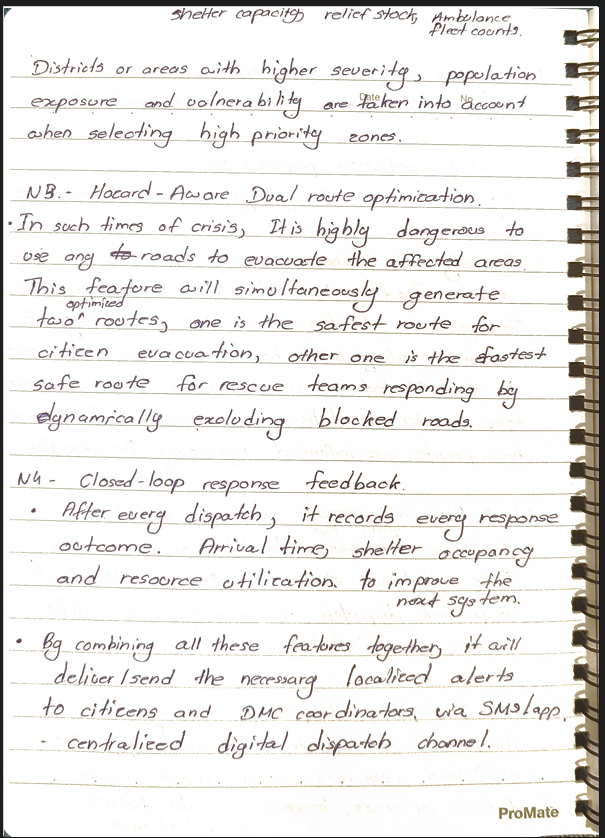 shelter capacity, relief stock, Ambulance
fleet counts.
Date No
Districts or areas with higher severity, population
exposure and vulnerability are taken into account
when selecting high priority zones.
N3.- Hazard-Aware Dual route optimization.
• In such times of crisis, It is highly dangerous to
use any to roads to evacuate the affected areas.
This feature will simultaneously generate
optimized
two ^ routes, one is the safest route for
citizen evacuation, other one is the fastest
safe route for rescue teams responding by
dynamically excluding blocked roads.
N4 - Closed-loop response feedback.
• After every dispatch, it records every response
outcome. Arrival time, shelter occupancy
and resource utilization. to improve the
next system.
• By combining all these features together, it will
deliver/send the necessary localized alerts
to citizens and DMC coordinators, via SMS/app,
- centralized digital dispatch channel.
ProMate